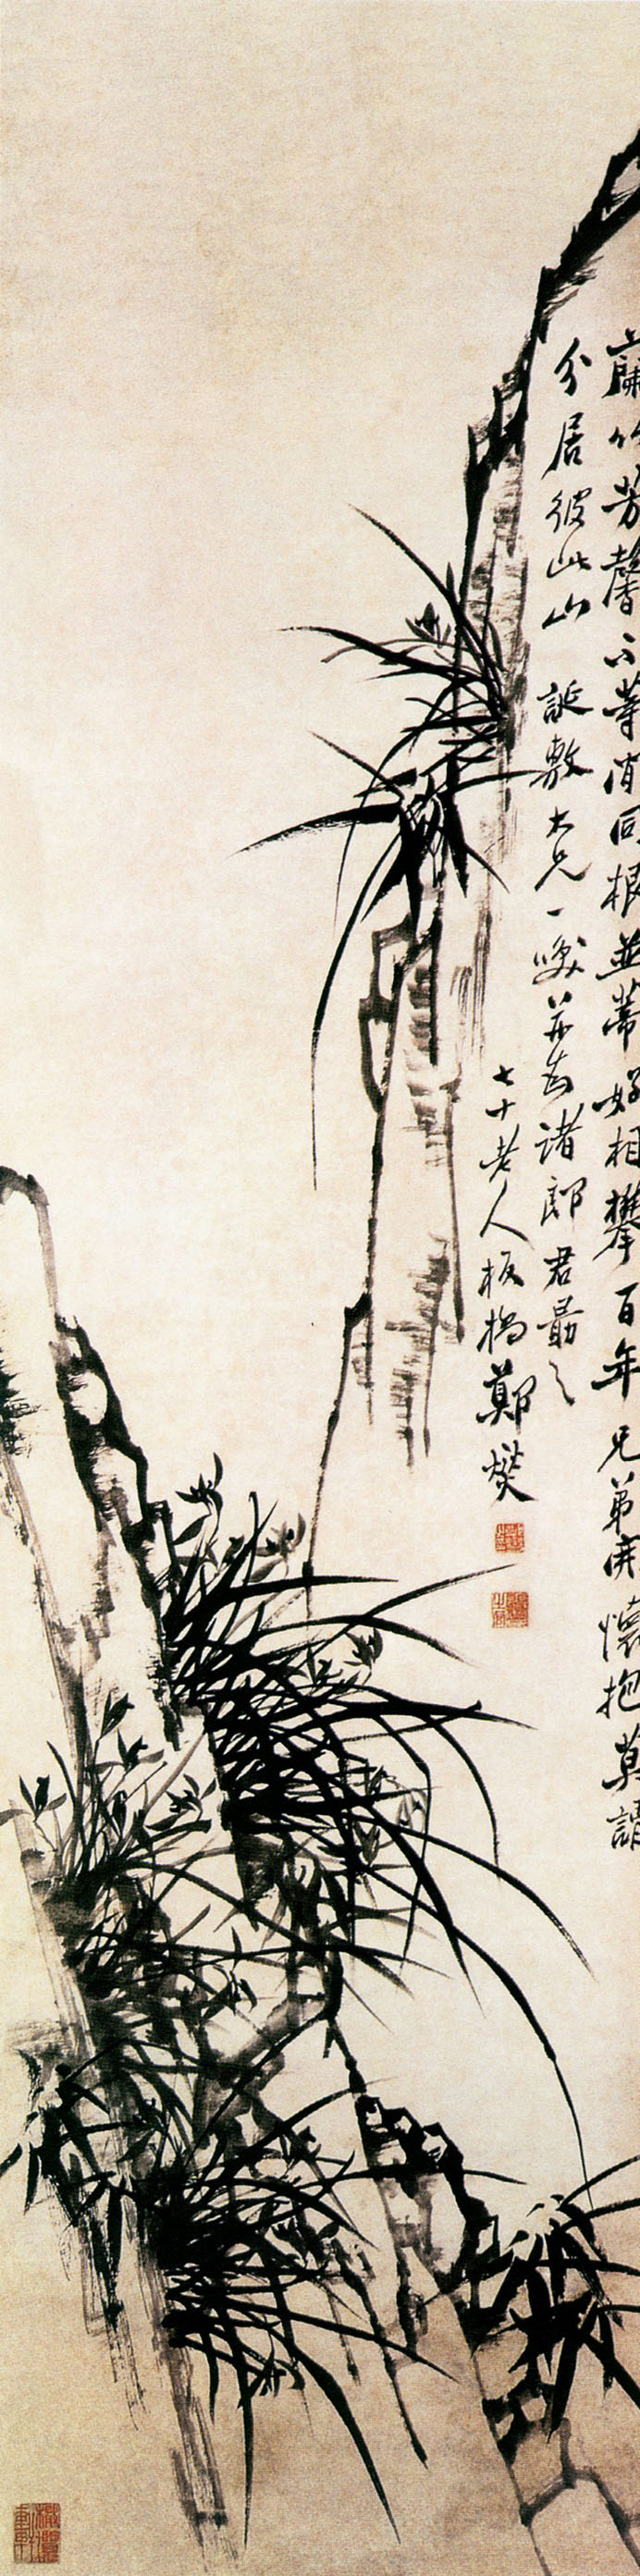 蘭竹芳馨不等閑同根並蒂好相攀百年兄弟開懷抱莫謂
分居彼此山 誕敷大兄一咲並為諸郎君勗之
七十老人板橋鄭燮